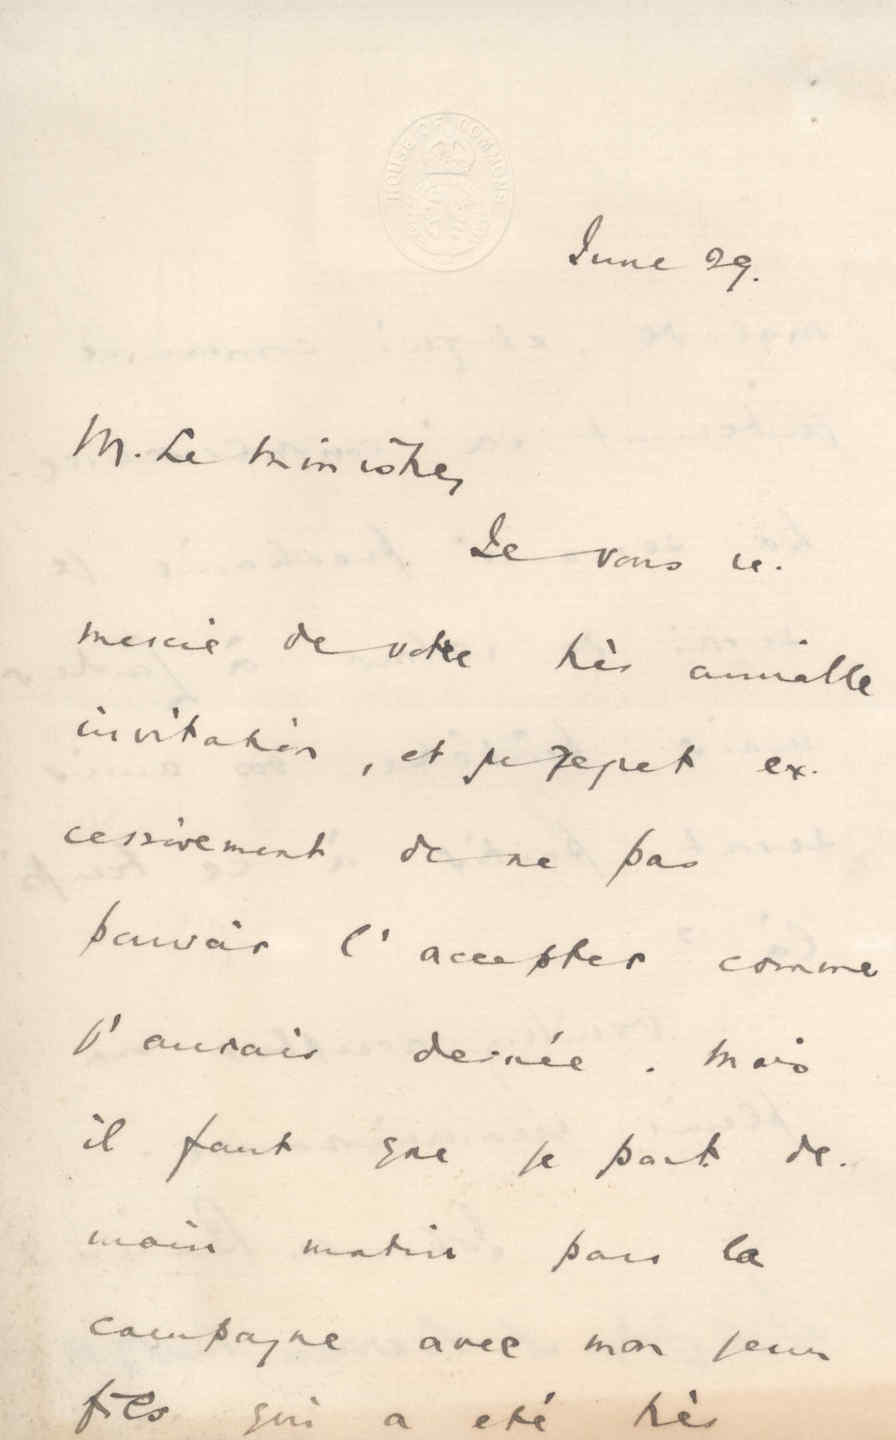 HOUSE OF COMMONS
June 29.
M. Le Ministre,
Je vous re.
mercie de votre très aimable
invitation, et je regret ex.
cessivement de ne pas
pouvoir l'accepter comme
j'aurais
. Mais
il faut que je part de.
main matin pour la
campagne avec mon jeun
fils qui a eté très